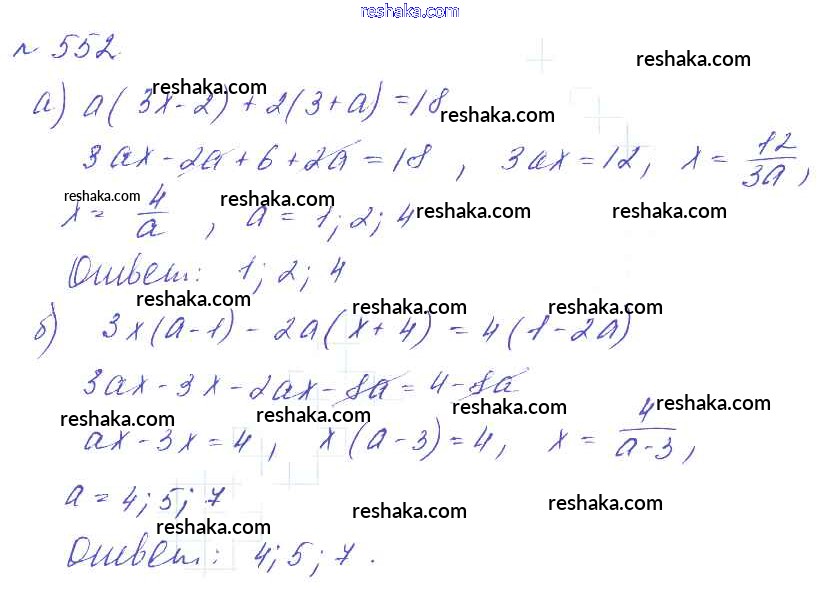 reshaka.com
№ 552.
reshaka.com
reshaka.com
а) a(3x-2)+2(3+a)=18
reshaka.com
3ax-2a+6+2a=18, 3ax=12, x=12/3a,
reshaka.com reshaka.com reshaka.com reshaka.com
x=4/a, a=1; 2; 4
Ответ: 1; 2; 4
reshaka.com reshaka.com reshaka.com
б) 3x(a-1)-2a(x+4)=4(1-2a)
3ax-3x-2ax-8a=4-8a
reshaka.com reshaka.com reshaka.com reshaka.com
ax-3x=4, x(a-3)=4, x=4/a-3,
a=4; 5; 7
reshaka.com reshaka.com reshaka.com
Ответ: 4; 5; 7.